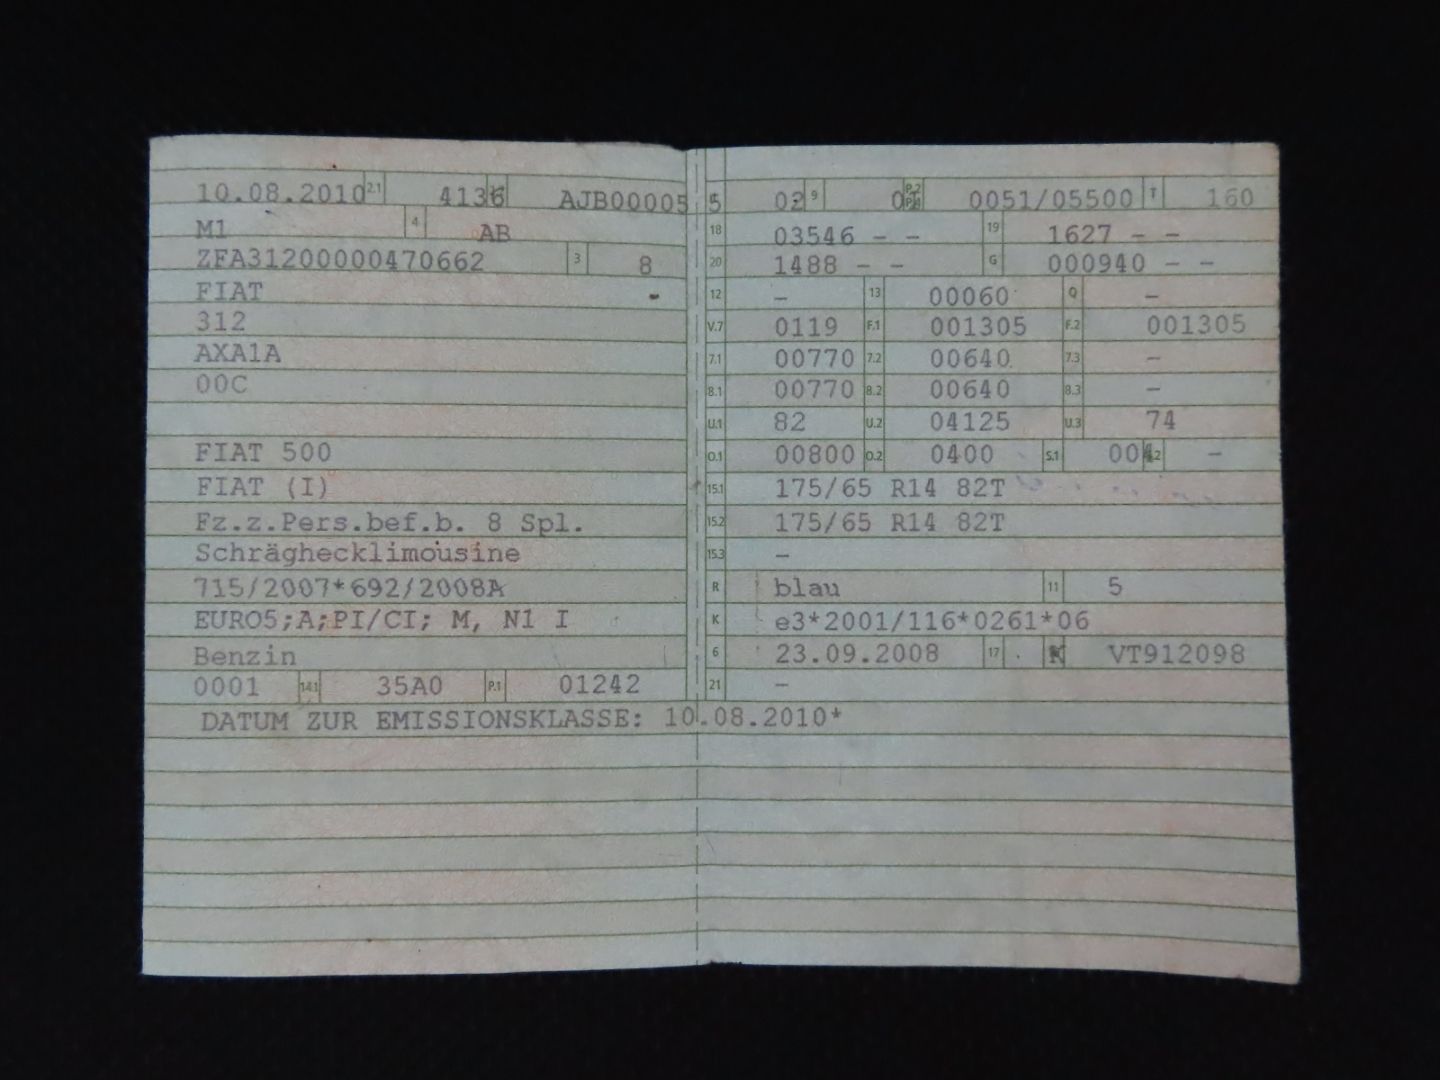 10.08.2010 2.1 4136 AJB00005
M1 4 AB
ZFA31200000470662 3 8
FIAT -
312
AXA1A
00C
FIAT 500
FIAT (I)
Fz.z.Pers.bef.b. 8 Spl.
Schräghecklimousine
715/2007*692/2008A
EURO5;A;PI/CI; M, N1 I
Benzin
0001 14.1 35A0 P.1 01242
5 02 9 0 P.2 P.4 0051/05500 T 160
18 03546 - - 19 1627 - -
20 1488 - - G 000940 - -
12 - 13 00060 Q -
V.7 0119 F.1 001305 F.2 001305
7.1 00770 7.2 00640 7.3 -
8.1 00770 8.2 00640 8.3 -
U.1 82 U.2 04125 U.3 74
O.1 00800 O.2 0400 S.1 004 S.2 -
15.1 175/65 R14 82T
15.2 175/65 R14 82T
15.3 -
R blau 11 5
K e3*2001/116*0261*06
6 23.09.2008 17 K VT912098
21 -
DATUM ZUR EMISSIONSKLASSE: 10.08.2010*